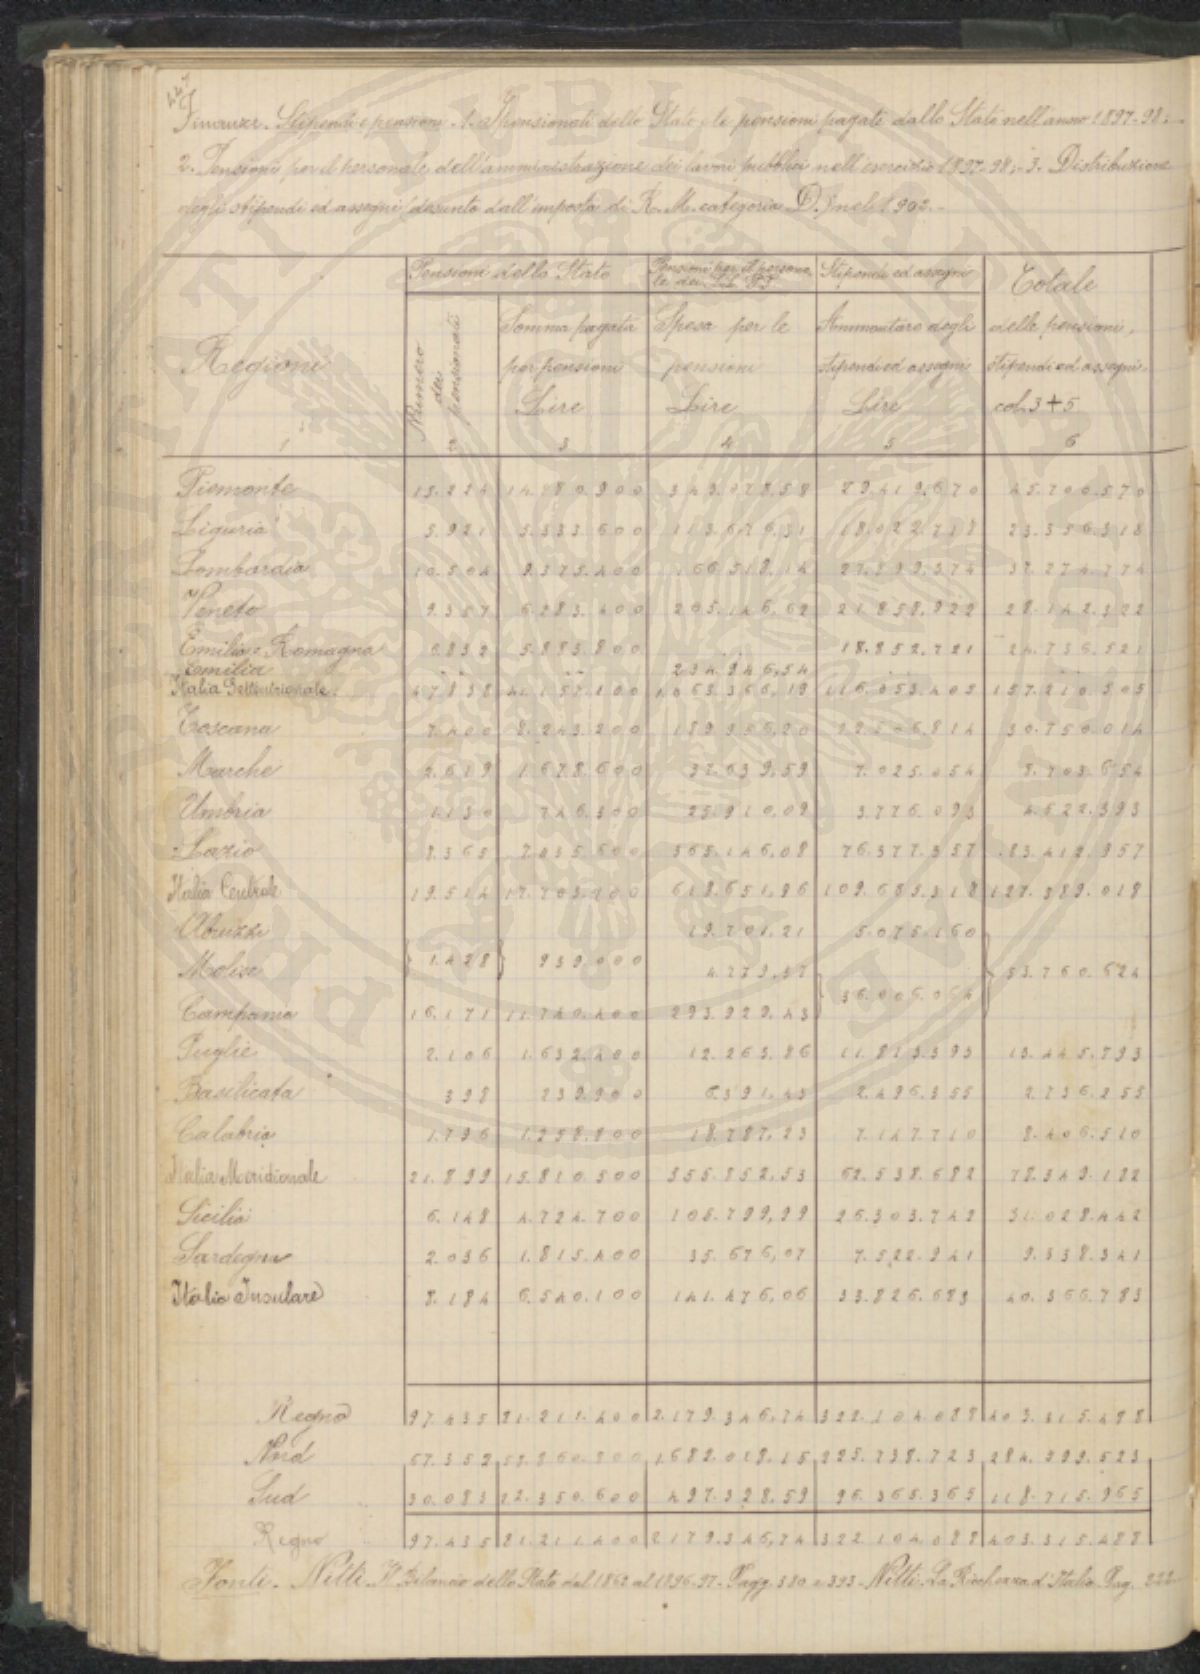 Finanze. Stipendi e pensioni. 1. Pensionati dello Stato e le pensioni pagate dallo Stato nell'anno 1897-98;
2. Pensioni per il personale dell'amministrazione dei lavori pubblici nell'esercizio 1897-98; 3. Distribuzione
degli stipendi ed assegni (desunto dall'imposta di R. M. categoria D.) nel 1902.
Pensioni dello Stato Pensioni per il personale dei L. P. Stipendi ed assegni Totale
Regioni Numero dei pensionati Somma pagata per pensioni Lire Spesa per le pensioni Lire Ammontare degli stipendi ed assegni Lire delle pensioni, stipendi ed assegni. col. 3+5
1 2 3 4 5 6
Piemonte 15.224 349.078,58 29.419.670 45.700.570
Liguria 5.921 5.333.600 113.676,31 18.022.718 23.356.318
Lombardia 10.504 9.375.400 166.518,14 27.899.374 37.274.774
Veneto 9.357 6.283.400 205.146,62 21.858.922 28.142.322
Emilia e Romagna 6.832 5.883.800 18.852.721 24.736.521
Emilia .. .. 234.946,54 ..
Italia Settentrionale 47.838 41.157.100 1.063.366,19 116.053.405 157.210.505
Toscana 7.400 8.243.200 189.956,20 22.506.814 30.750.014
Marche 2.619 1.678.600 37.639,59 7.025.054 8.703.654
Umbria 1.130 746.300 25.910,09 3.776.093 4.522.393
Lazio 8.365 7.035.600 365.146,08 76.377.357 83.412.957
Italia Centrale 19.514 17.703.700 618.651,96 109.685.318 127.389.018
Abruzzi 19.701,21 5.075.160
Molise 1.428 939.000 4.779,37 53.760.624
Campania 16.171 11.740.400 293.929,43 36.006.064
Puglie 2.106 1.632.400 12.263,86 11.813.393 13.445.793
Basilicata 398 239.900 6.391,43 2.496.355 2.736.255
Calabria 1.796 1.258.800 18.787,23 7.147.710 8.406.510
Italia Meridionale 21.899 15.810.500 355.852,53 62.538.682 78.349.182
Sicilia 6.148 4.724.700 105.799,99 26.303.742 31.028.442
Sardegna 2.036 1.815.400 35.676,07 7.522.941 9.338.341
Italia Insulare 8.184 6.540.100 141.476,06 33.826.683 40.366.783
Regno 97.435 81.211.400 2.179.346,74 322.104.088 403.315.488
Nord 67.352 58.860.800 1.682.018,15 225.738.723 284.599.523
Sud 30.083 22.350.600 497.328,59 96.365.365 118.715.965
Regno 97.435 81.211.400 2.179.346,74 322.104.088 403.315.488
Fonti. Nitti. Il Bilancio dello Stato dal 1862 al 1896-97. Pagg. 380 e 393. Nitti. La Ricchezza d'Italia. Pag. 222